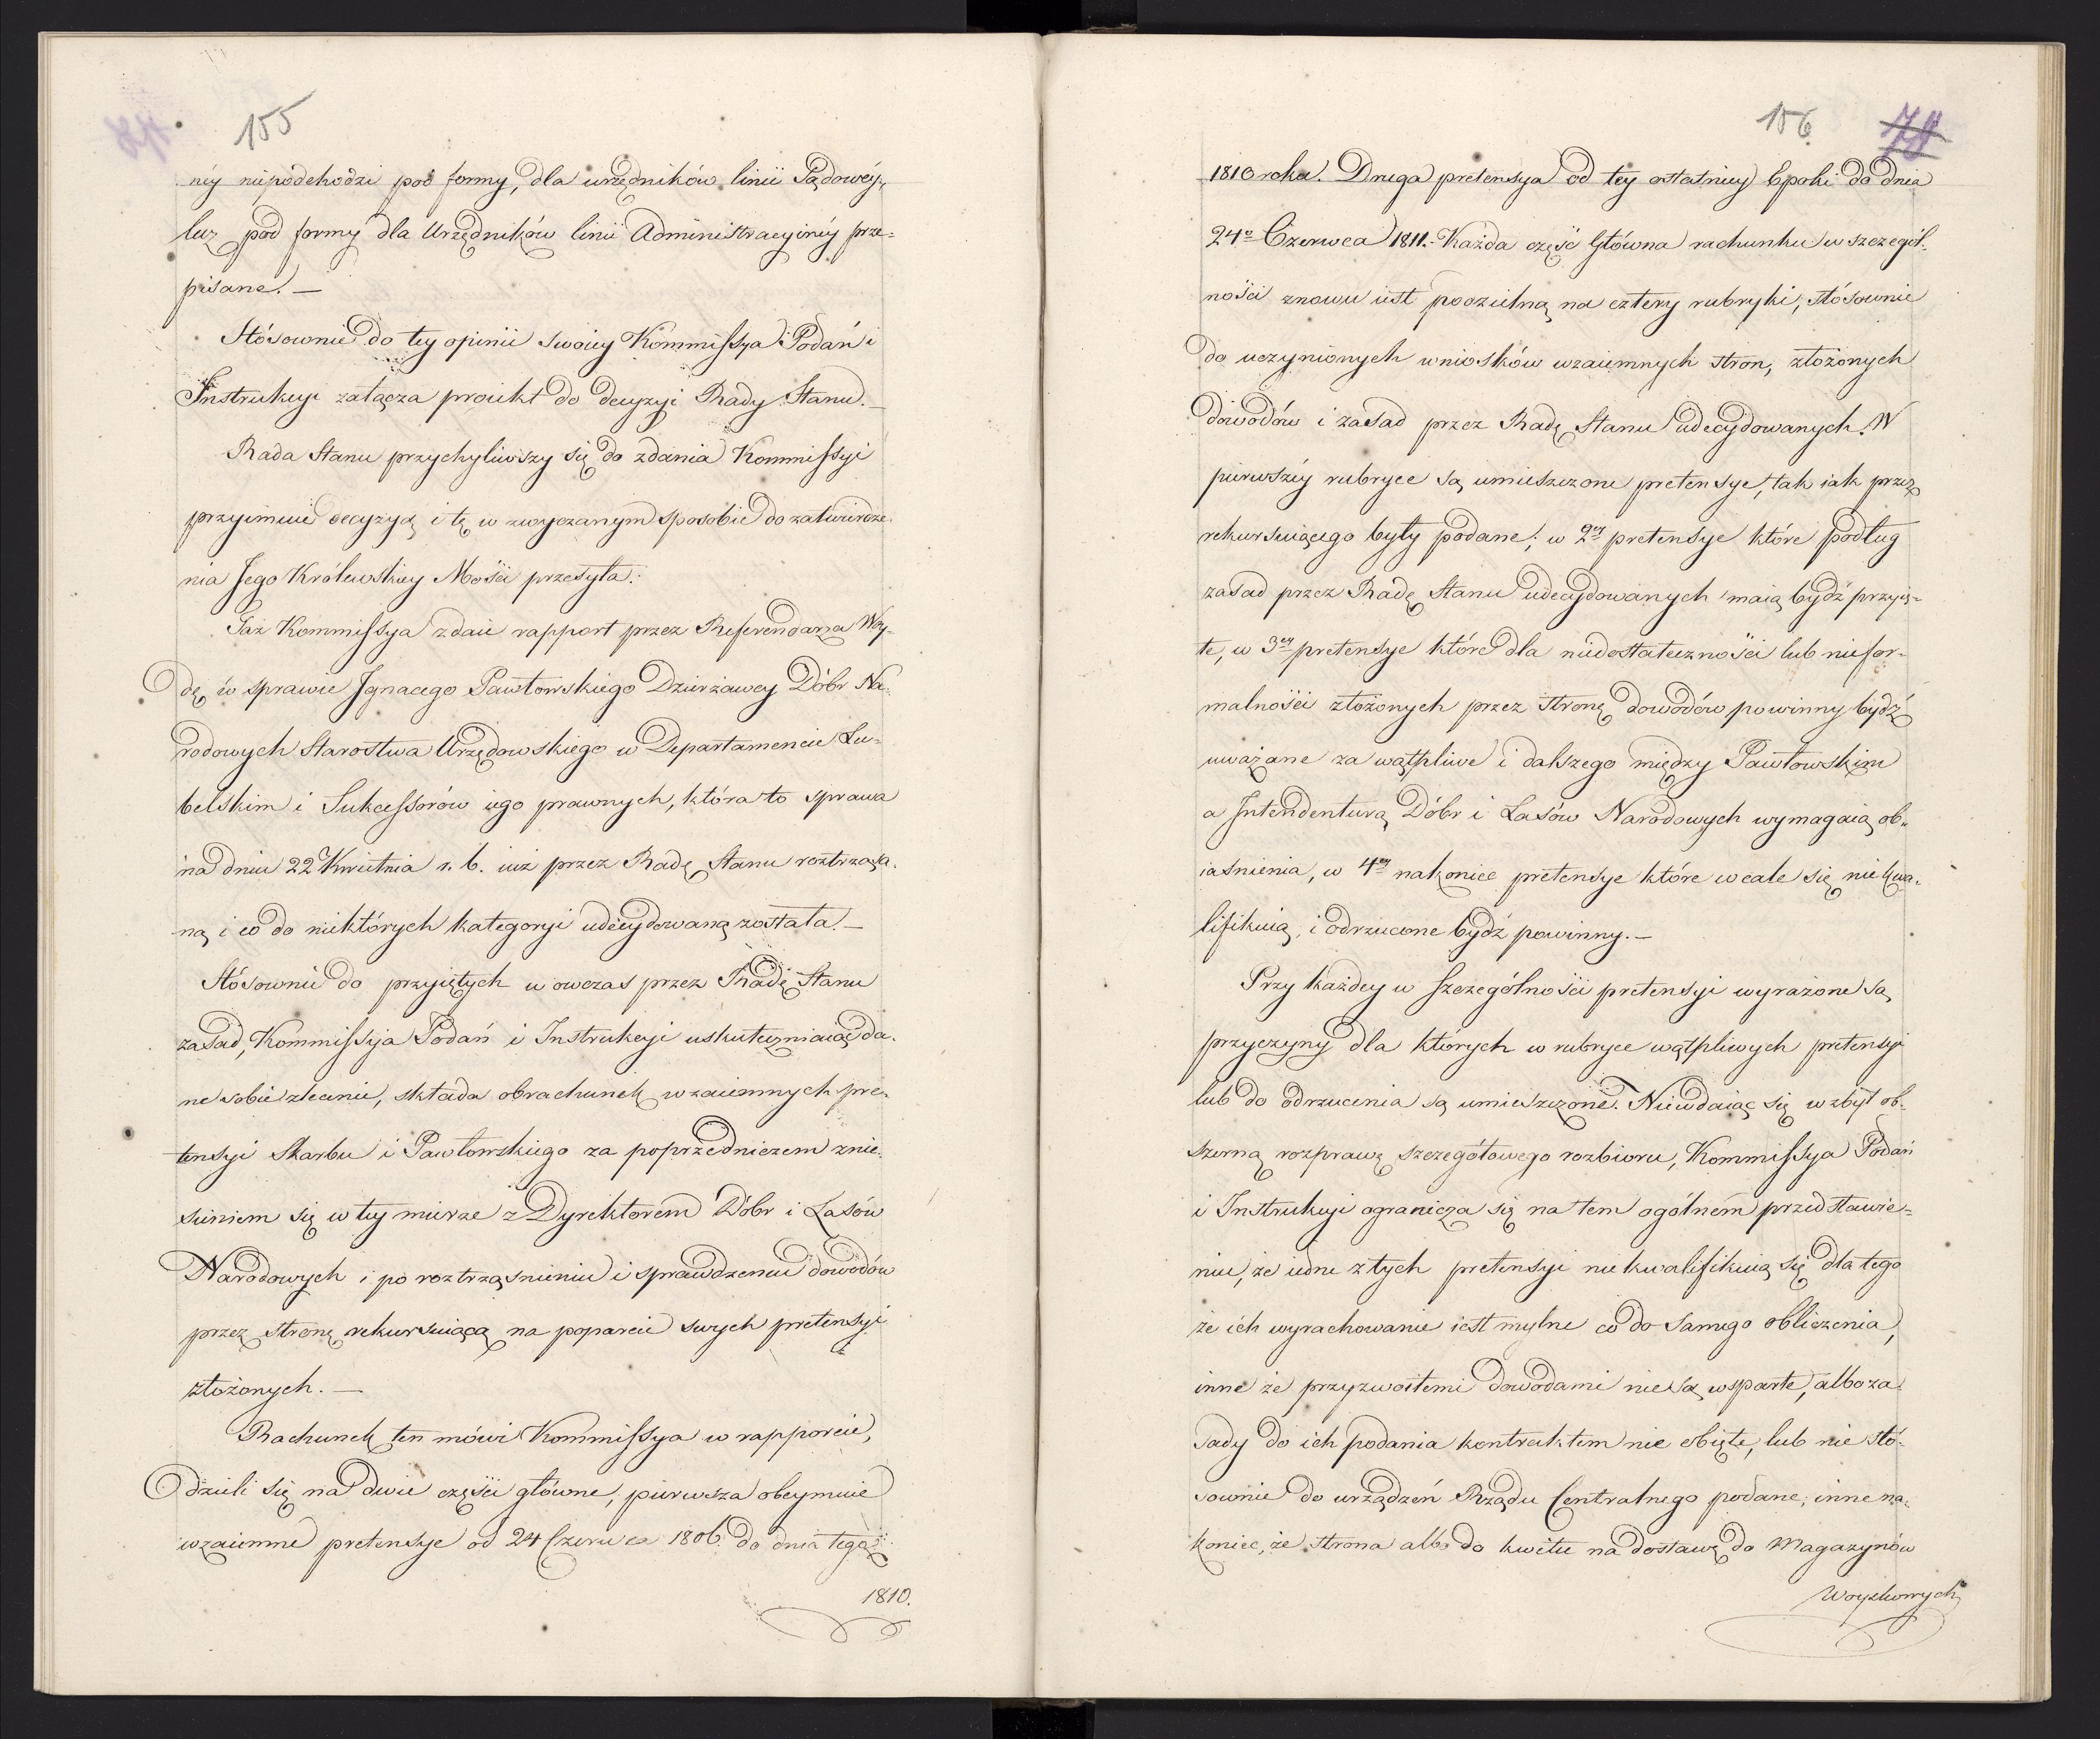 155
néy niepodchodzi pod formy, dla urzędników linii Sądowéy,
lecz pod formy dla Urzędników linii Administracyinéy prze=
pisane. —
Stósownie do tey opinii swoiey Kommissya Podań i
Instrukcyi załącza proiekt do decyzyi Rady Stanu. —
Rada Stanu przychyliwszy się do zdania Kommissyi
przyimuie decyzyą i tę w zwyczanym sposobie do zatwierdze=
nia Jego Królewskiey Mości przesyła.
Taż Kommissya zdaie rapport przez Referendarza Woy=
dę w sprawie Ignacego Pawłowskiego Dzierżawcy Dóbr Na=
rodowych Starostwa Urzędowskiego w Departamencie Lu=
belskim i Sukcessorów iego prawnych, która to sprawa
na dniu 22 Kwietnia r. b. iuż przez Radę Stanu roztrząsa=
ną i co do niektórych kategoryi udecydowaną została. —
Stósownie do przyiętych w owczas przez Radę Stanu
zasad, Kommissija Podań i Instrukcyi uskuteczniaiąc da=
ne sobie zlecenie, składa obrachunek wzaiemnych pre=
tensyi Skarbu i Pawłowskiego za poprzedniczem znie=
sieniem się w tey mierze z Dyrektorem Dóbr i Lasów
Narodowych i po roztrząśnieniu i sprawdzeniu dowodów
przez stronę rekursuiącą na poparcie swych pretensyi
złożonych. —
Rachunek ten mówi Kommissya w rapporcie,
dzieli się na dwie części główne, pierwsza obeymuie
wzaiemne pretensye od 24 Czerwca 1806. do dnia tegoż
1810.
156
1810 roku. Druga pretensya od tey ostatniey Epoki do dnia
24º Czerwca 1811. Każda część Główna rachunku w szczegól=
ności znowu iest podzielną na cztery rubryki, stósownie
do uczynionych wniosków wzaiemnych stron, złożonych
dowodów i zasad przez Radę Stanu udecydowanych. W
pierwszéy rubryce są umieszczone pretensye, tak iak przez
rekursuiącego były podane; w 2ey pretensye które podług
zasad przez Radę Stanu udecydowanych maią bydź przyię=
te, w 3ey pretensye które dla niedostateczności lub niefor=
malności złożonych przez stronę dowodów powinny bydź
uważane za wątpliwe i dalszego między Pawłowskim
a Intendenturą Dóbr i Lasów Narodowych wymagaią ob=
iaśnienia, w 4ey nakoniec pretensye które wcale się niekwa=
lifikuią, i odrzucone bydź powinny. —
Przy każdey w szczególności pretensyi wyrażone są
przyczyny dla których w rubryce wątpliwych pretensyi
lub do odrzucenia są umieszczone. Niewdaiąc się w zbyt ob=
szerną rozprawę szczegółowego rozbioru, Kommissya Podań
i Instrukcyi ogranicza się na tem ogólném przedstawie=
niu, że iedne z tych pretensyi niekwalifikuią się dla tego
że ich wyrachowanie iest mylne co do samego obliczenia,
inne że przyzwoitemi dowodami nie są wsparte, albo za=
sady do ich podania kontraktem nie obięte, lub nie stó=
sownie do urządzeń Rządu Centralnego podane; inne na=
koniec, że strona albo do kwitu na dostawę do Magazynów
Woyskowych